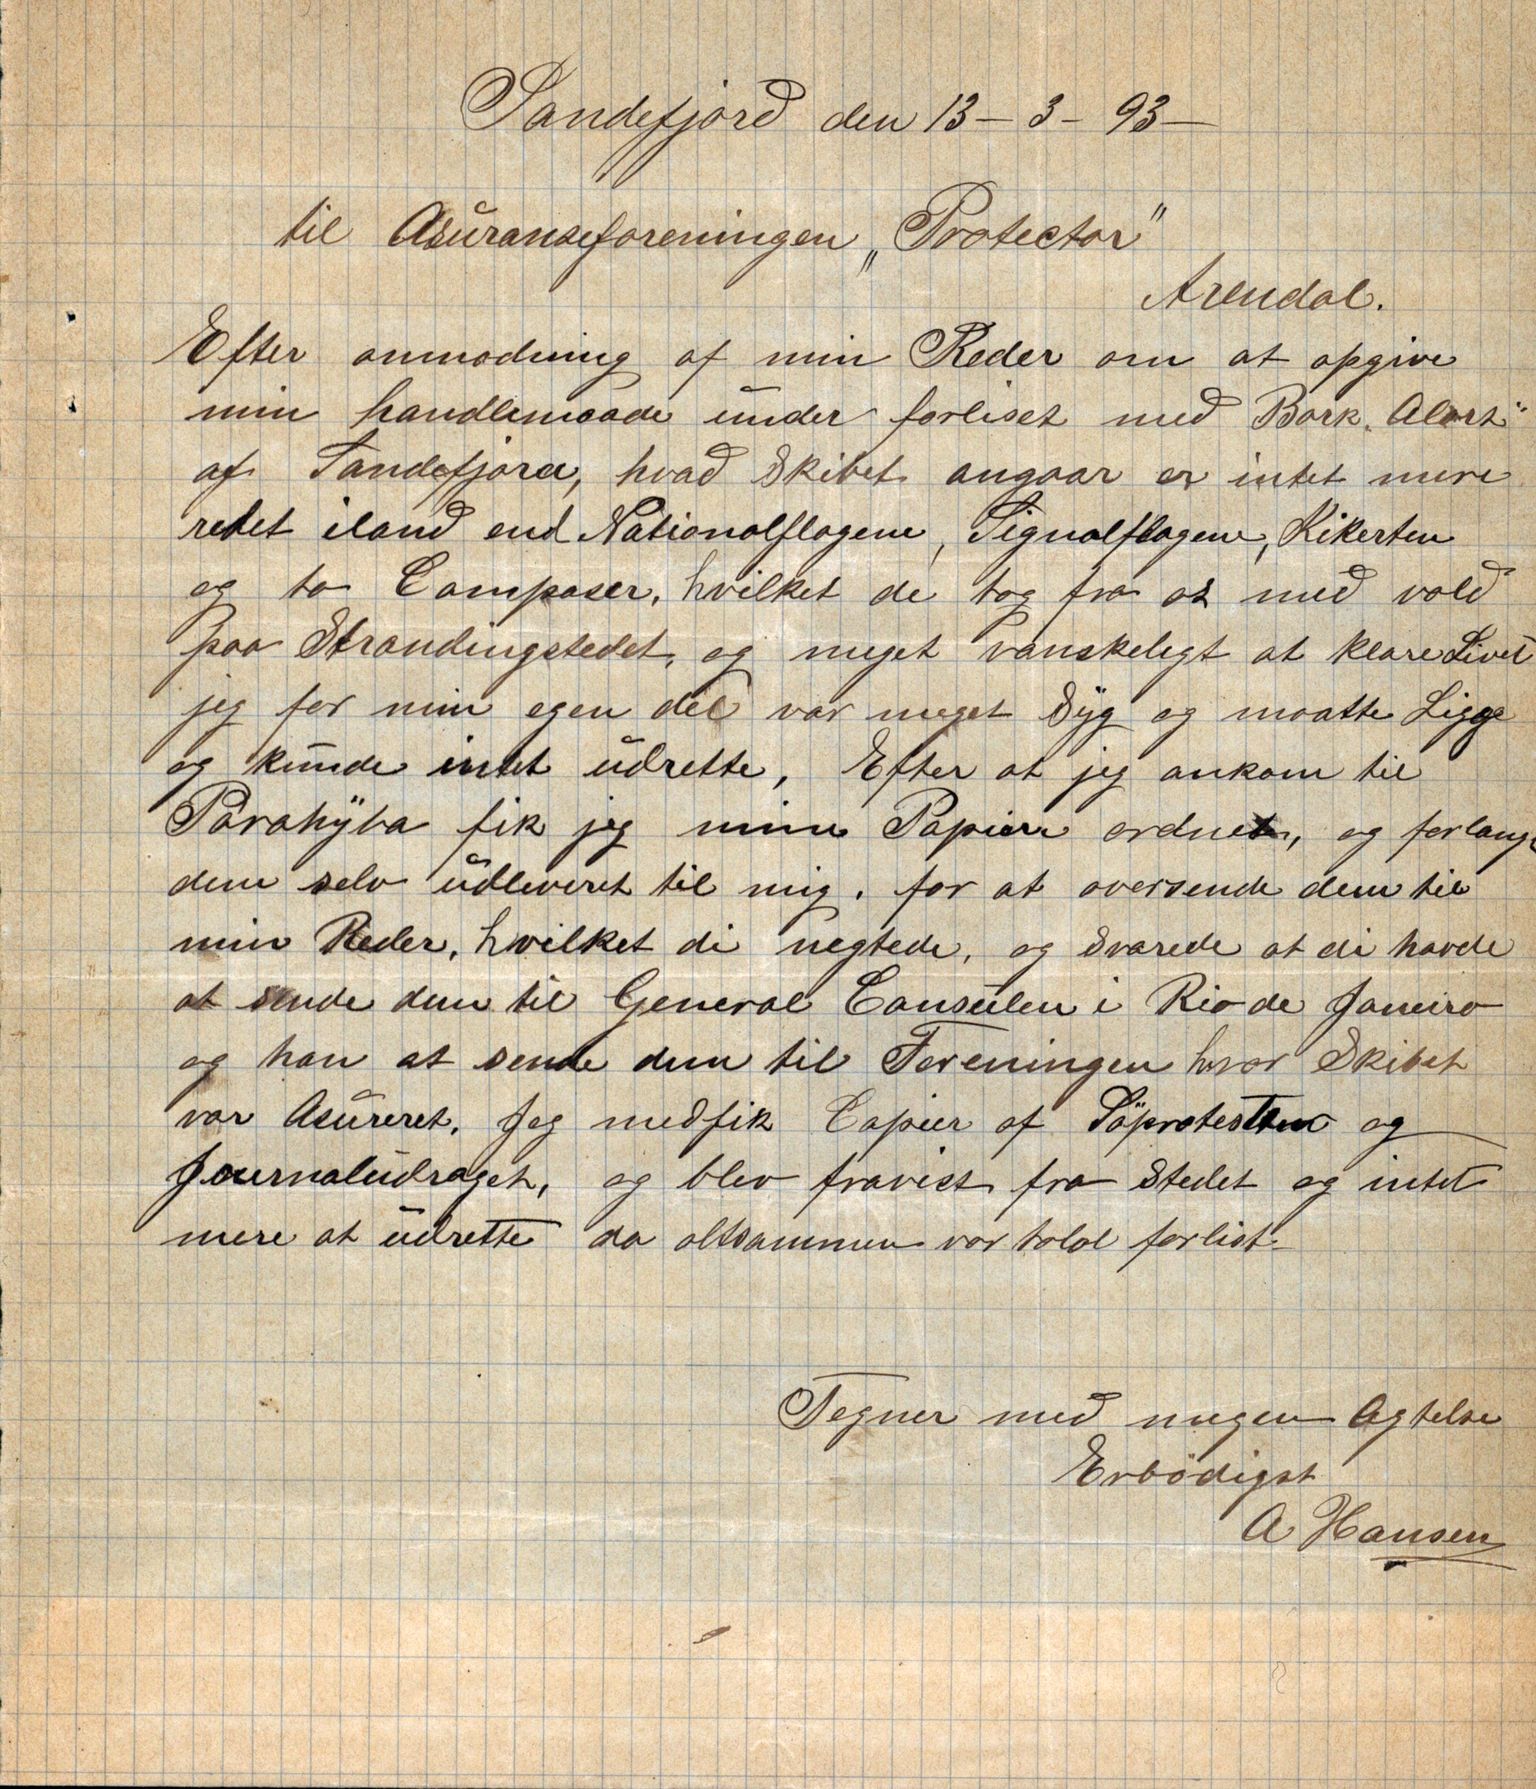 Sandefjord den 13 – 3 – 93 –
til Asuranseforeningen „Protector"
Arendal.
Efter anmodning af min Reder om at opgive
min handlemaade under forliset med Bark „Alert"
af Sandefjord, hvad Skibet angaar er intet mere
redet iland end Nationalflagene, Signalflagene, Kikerten
og to Compaser, hvilket de tog fra os med vold
paa Strandingstedet, og meget vanskeligt at klare Livet
jeg for min egen del var meget Syg og maatte Ligge
og kunde intet udrette, Efter at jeg ankom til
Parahyba fik jeg mine Papirer ordnet, og forlang
dem selv udleveret til mig. for at oversende dem til
min Reder, hvilket di negtede, og Svarede at di havde
at sende dem til General Consulen i Rio de Janeiro
og han at sende dem til Foreningen hvor Skibet
var Asureret. Jeg medfik Copier af Söprotesten og
Journaludraget, og blev fravist fra Stedet og intet
mere at udrette da altsammen var totol forlist.
Tegner med megen Agtelse
Erbödigst
A Hansen